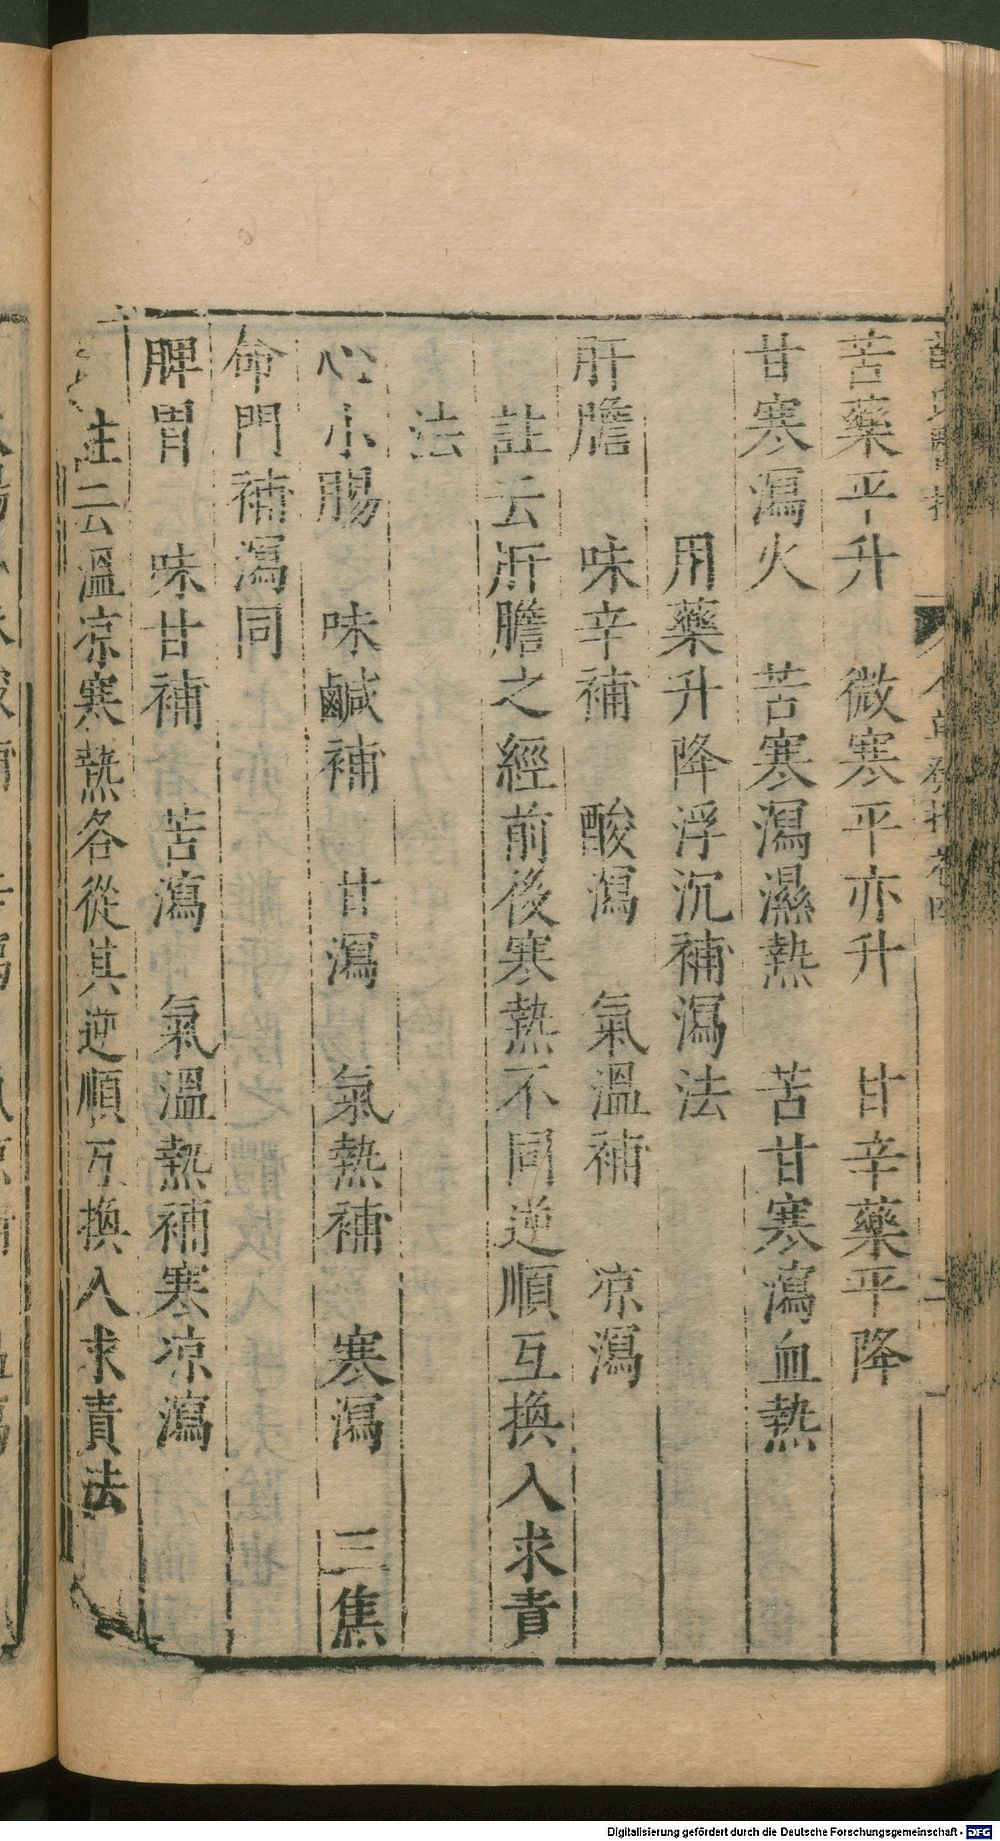 苦藥平升　微寒平亦升　甘辛藥平降
甘寒瀉火　苦寒瀉濕熱　苦甘寒瀉血熱
用藥升降浮沉補瀉法
肝膽　味辛補　酸瀉　氣溫補　凉瀉
註云肝膽之經前後寒熱不同逆順互換入求責
法
心小腸　味鹹補　甘瀉　氣熱補　寒瀉　三焦
命門補瀉同
脾胃　味甘補　苦瀉　氣溫熱補寒凉瀉
註云溫凉寒熱各從其逆順互換入求責法
Digitalisierung gefördert durch die Deutsche Forschungsgemeinschaft - DFG